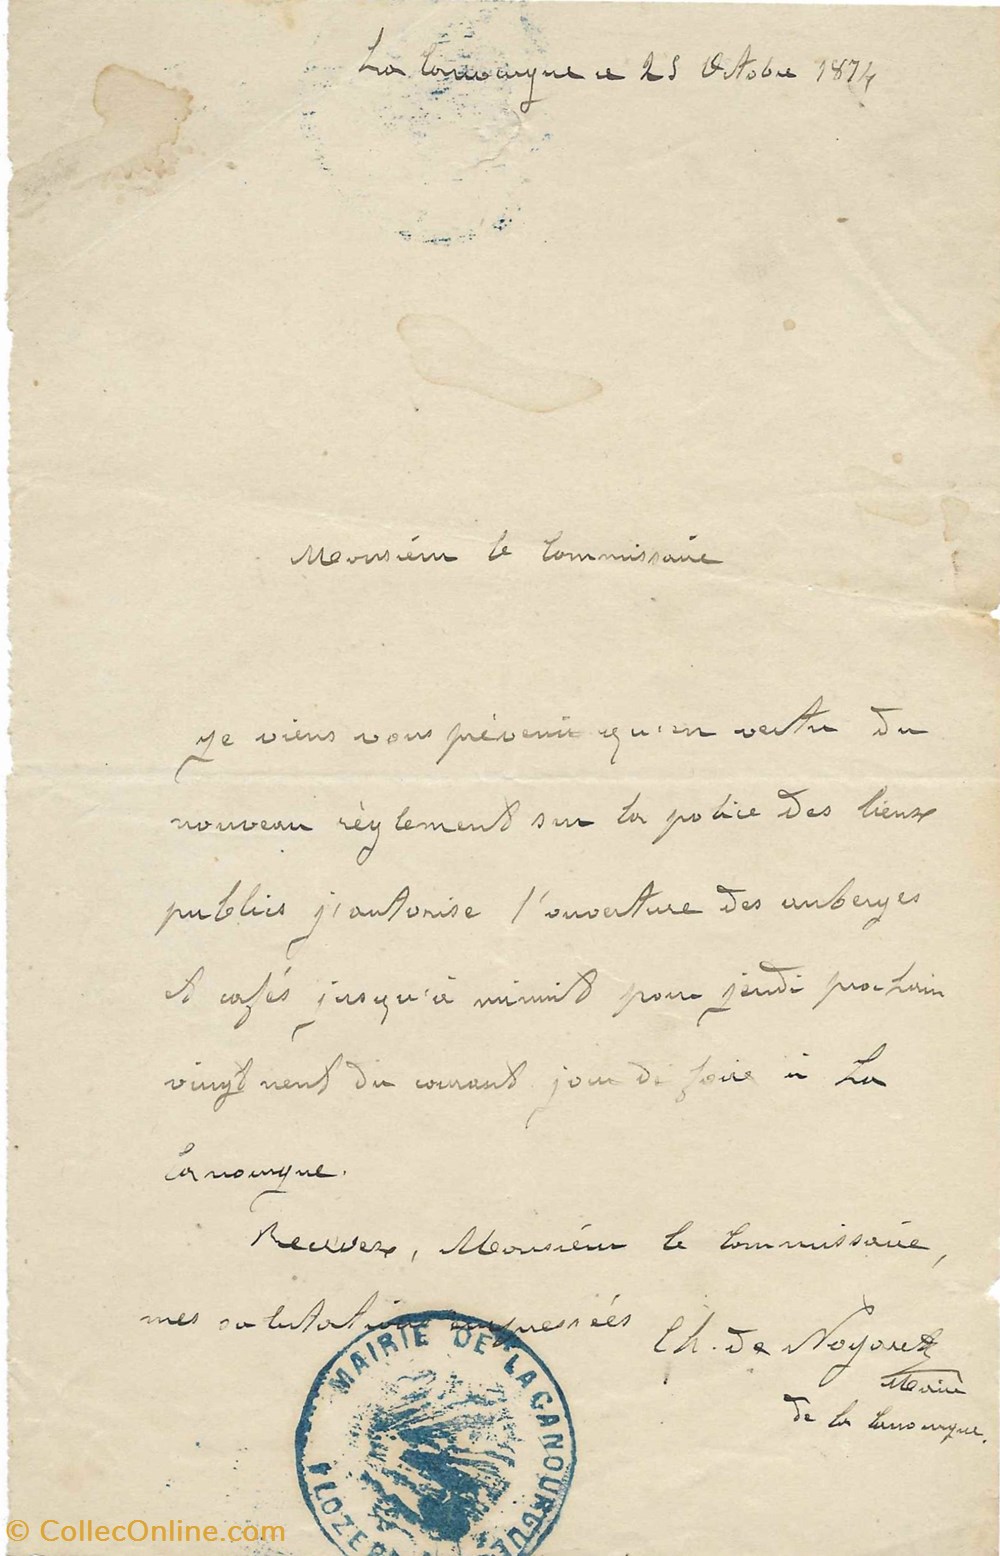 La Canourgue le 25 Octobre 1874
Monsieur le Commissaire
Je viens vous prévenir qu'en vertu du
nouveau règlement sur la police des lieux
publics j'autorise l'ouverture des auberges
et cafés jusqu'à minuit pour jeudi prochain
vingt neuf du courant jour de foire à La
Canourgue.
Recevez, Monsieur le Commissaire,
mes salutations empressées
Ch. de Nogaret
Maire
de la Canourgue.
MAIRIE DE LA CANOURGUE
LOZÈRE
© CollecOnline.com